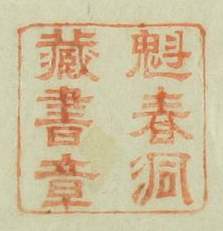 魁春洞
藏書章